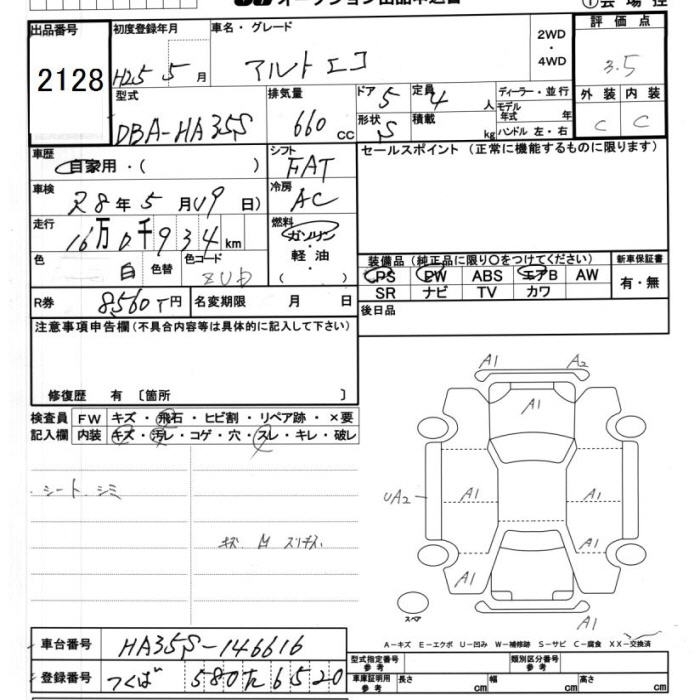 オークション出品申込書
①会場控
出品番号 初度登録年月 車名・グレード 2WD ・ 4WD 評価点
2128 H25 5月 アルト エコ 3.5
型式 排気量 ドア 5 定員 4人 ディーラー・並行 外装 内装
DBA-HA35S 660cc 形状 S 積載 kg モデル年式 年 C C
ハンドル 左・右
車歴 自家用・( ) シフト FAT セールスポイント(正常に機能するものに限ります)
車検 28年5月(19日) 冷房 AC
走行 16万0千934km 燃料 ガソリン・軽油・( )
色 白 色替 色コード ZUD
装備品(純正品に限り○をつけてください) 新車保証書
PS PW ABS エアB AW 有・無
SR ナビ TV カワ
R券 8560円 名変期限 月 日 後日品
注意事項申告欄(不具合内容等は具体的に記入して下さい)
修復歴 有〔箇所 〕
検査員 FW キズ・飛石・ヒビ割・リペア跡・×要
記入欄 内装 キズ・汚レ・コゲ・穴・スレ・キレ・破レ
・シート、シミ
キズ
A1 A2
A1
A1 A1
UA2
A1 A1
A1
スペア
A-キズ E-エクボ U-凹み W-補修跡 S-サビ C-腐食 XX-交換済
車台番号 HA35S-146616
型式指定番号 参考 類別区分番号 参考
登録番号 つくば 580 た 6520
車庫証明用 参考 長さ cm 幅 cm 高さ cm